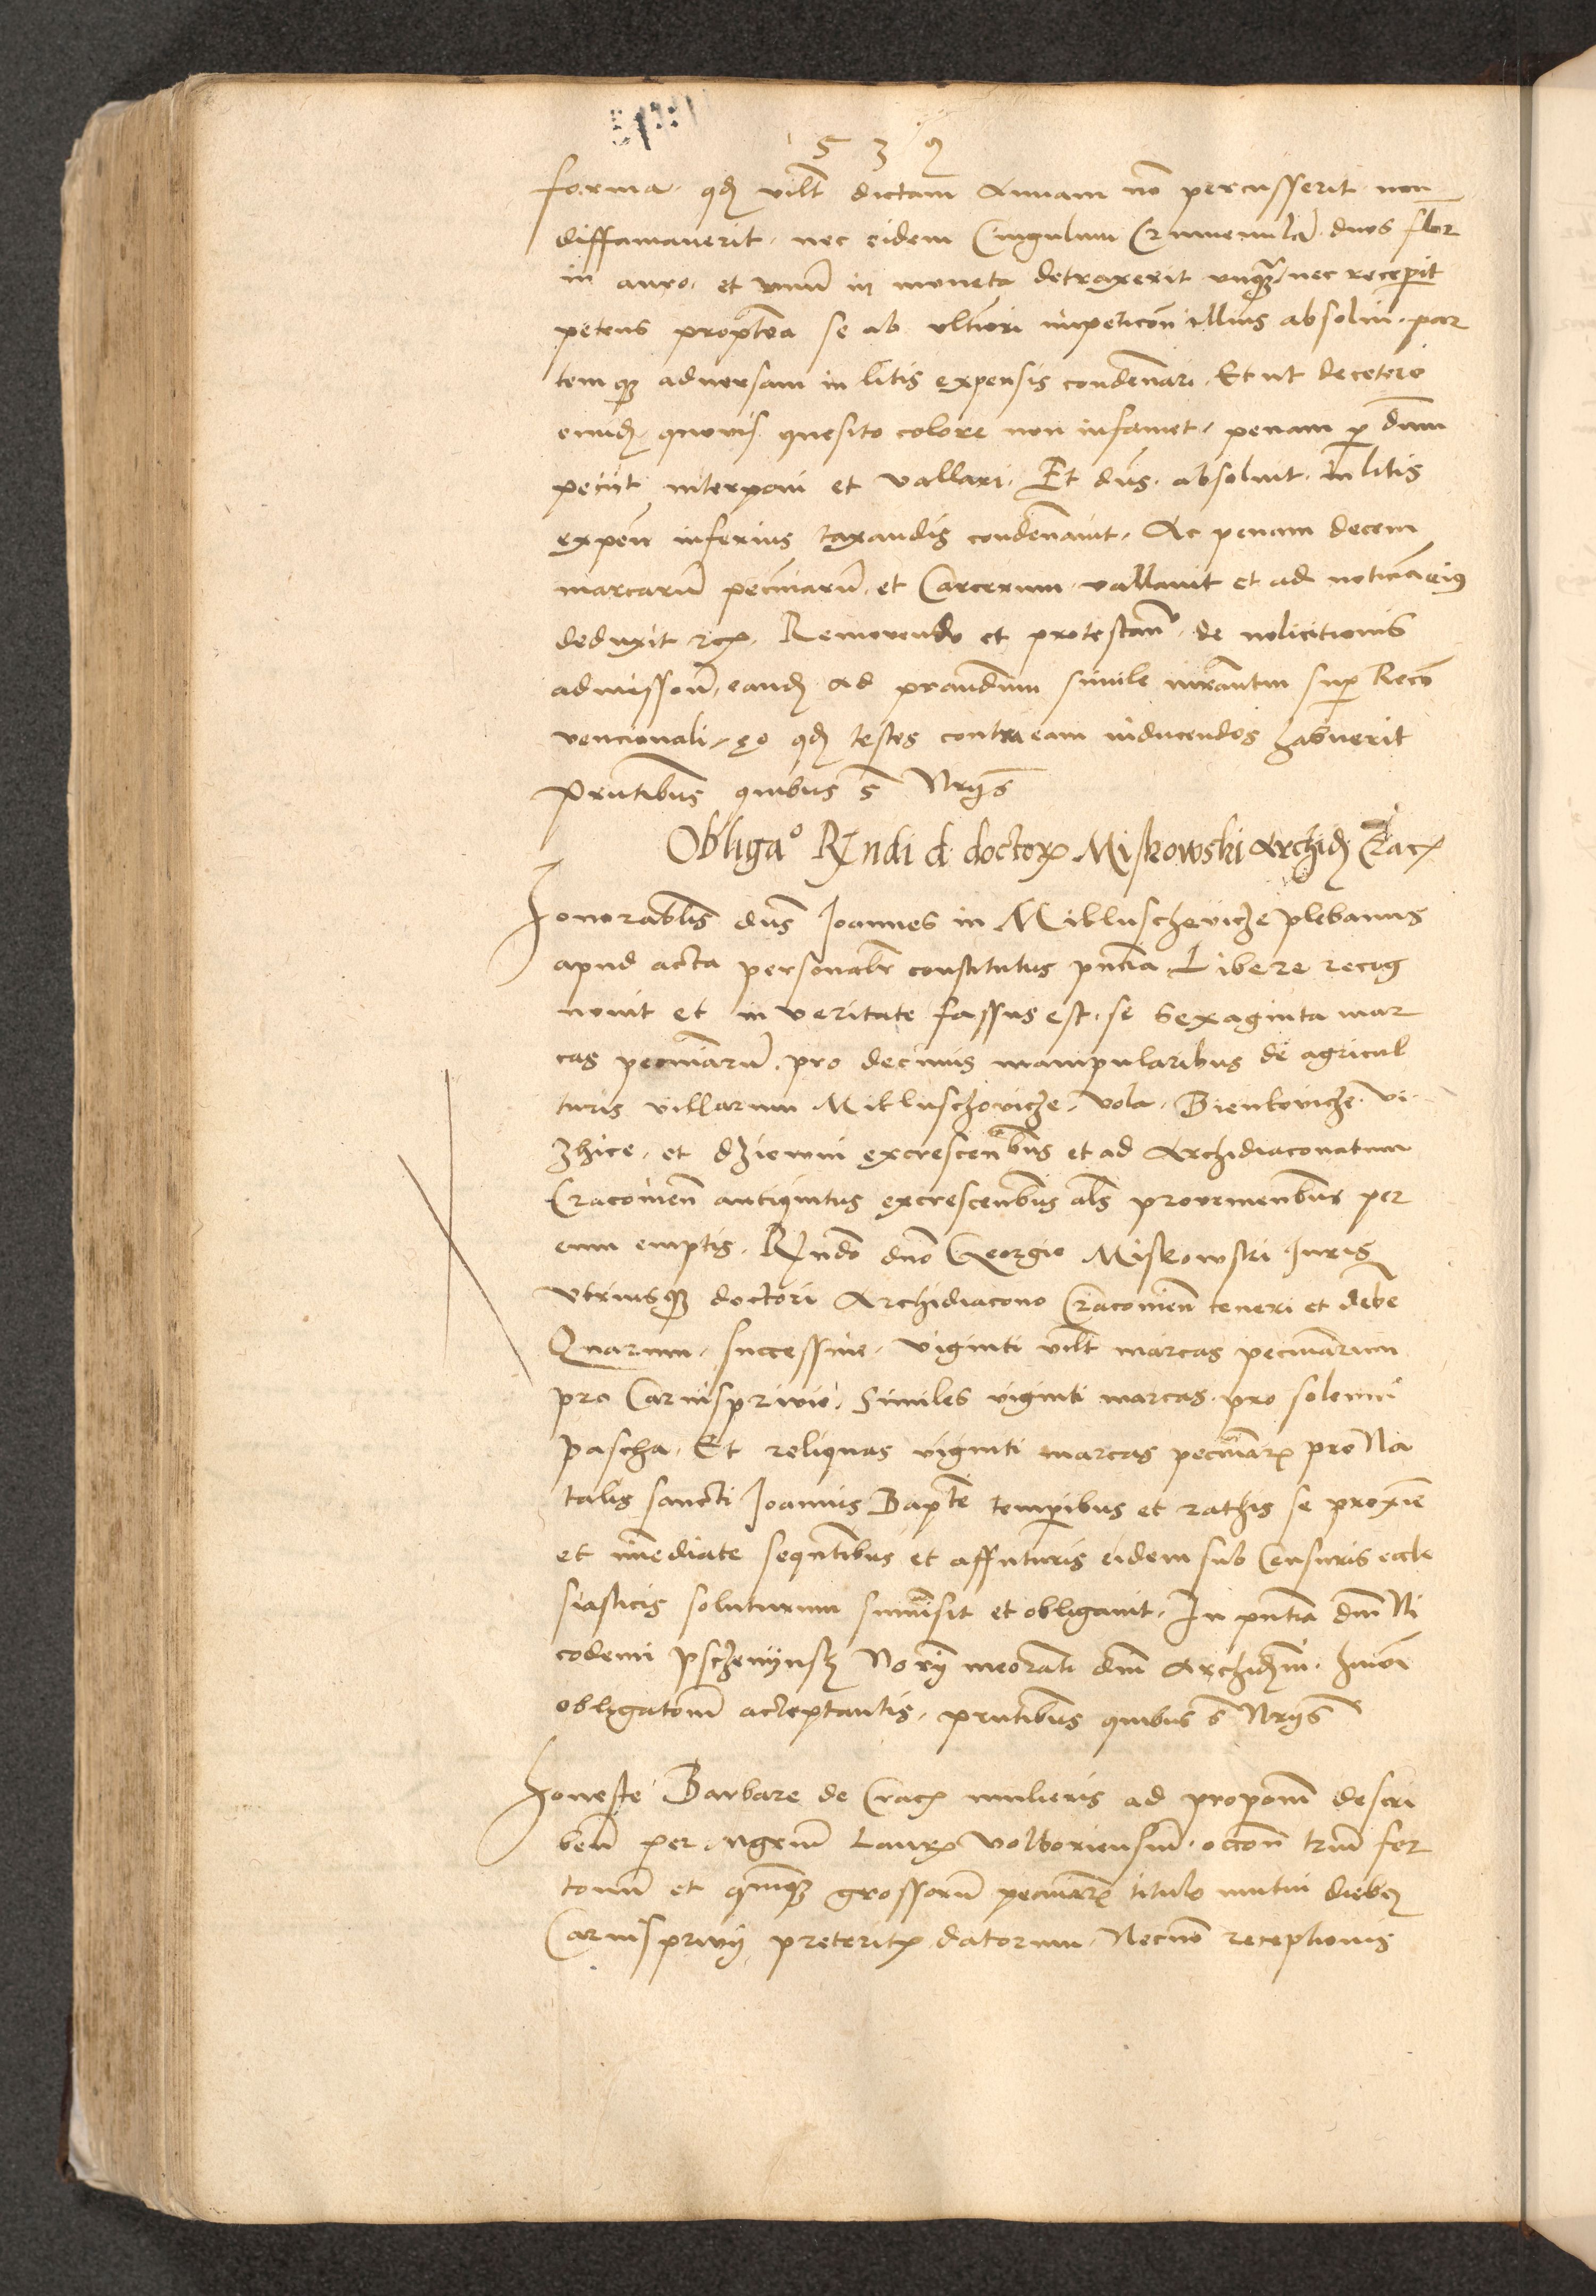 1 5 3 9
forma qd vilt dictam Annam no percusserit non
diffamaverit nec eidem Cingulum Crumenula duos flor
in auro et unu in moneta detraxerit unq nec recepit
petens propterea se ab ulteriori impeticon illius absolvi par
temq adversam in litis expensis condemnari Et ut decetero
quovis quesito colore non infamet penam p dnum
peciit interponi et vallari Et dns absolvit in litis
expen inferius taxandis condemnavit Ac penam decem
marcaru pecuniaru et Carcerum vallavit et ad noticia eius
deduxit Removendo et protestan de
admission eand ad simile iurantu sup Reco
vencionali eo qd testes contra eam inducendos habuerit
Pntibus quibus s
Obliga Rndi d doctor Miskowski Archid Crac
Honorablis dns Joannes in Mikluschevicze plebanus
apud acta personalr constitutus pntia Libere recog
novit et in veritate fassus est se Sexaginta mar
cas pecuniaru pro decimis manipularibus de agricul
turis villarum Mikluschovicze Vola Dienkovicze Vi
zhice et dziewin excrescentibus et ad Archidiaconatum
Cracovien antiquitus excrescentibus als provenientibus per
eum emptis Rndo dno Georgio Miskowski Juris
Utriusq doctori Archidiacono Cracovien teneri et debe
Quarum successive viginti vilt marcas pecuniarum
pro Carnisprivio Similes viginti marcas pro solenni
pascha Et reliquas viginti marcas pecuniar pro Na
talis sancti Joannis Bapte temporibus et rathis se proxime
et immediate sequentibus et affuturis eidem sub Censuris eccle
siasticis soluturum summisit et obligavit In pntia dni Ni
codemi Notarij memorati dni Archidni
obligationem acceptantis pntibus quibus s
Honeste Barbare de Crac mulieris ad proponem descri
ben per Mgrum Laur Volboriensium occon trium fer
tonum et quinq grossoru pecuniar titulo mutui dieb
Carnisprivij preterit datorum Necno receptionis